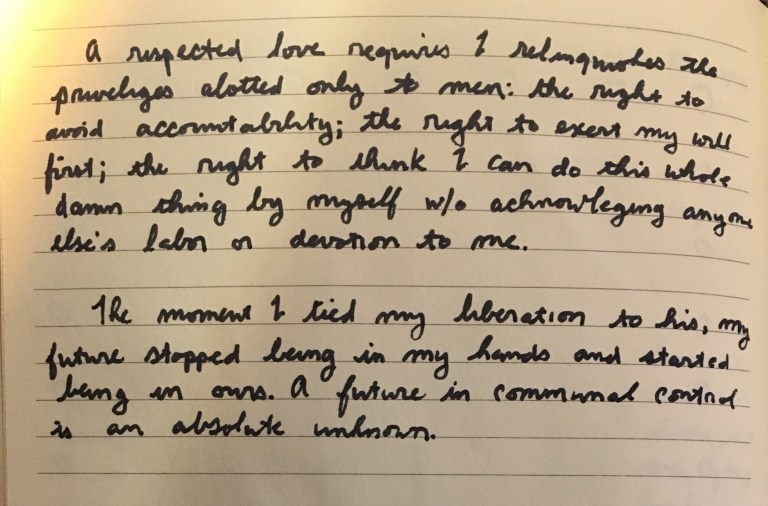 A respected love requires I relinquishes the
priveliges alotted only to men: the right to
avoid accountability; the right to exert my will
first; the right to think I can do this whole
damn thing by myself w/o acknowleging anyone
else's labor or devotion to me.
The moment I tied my liberation to his, my
future stopped being in my hands and started
being in ours. A future in communal control
is an absolute unknown.